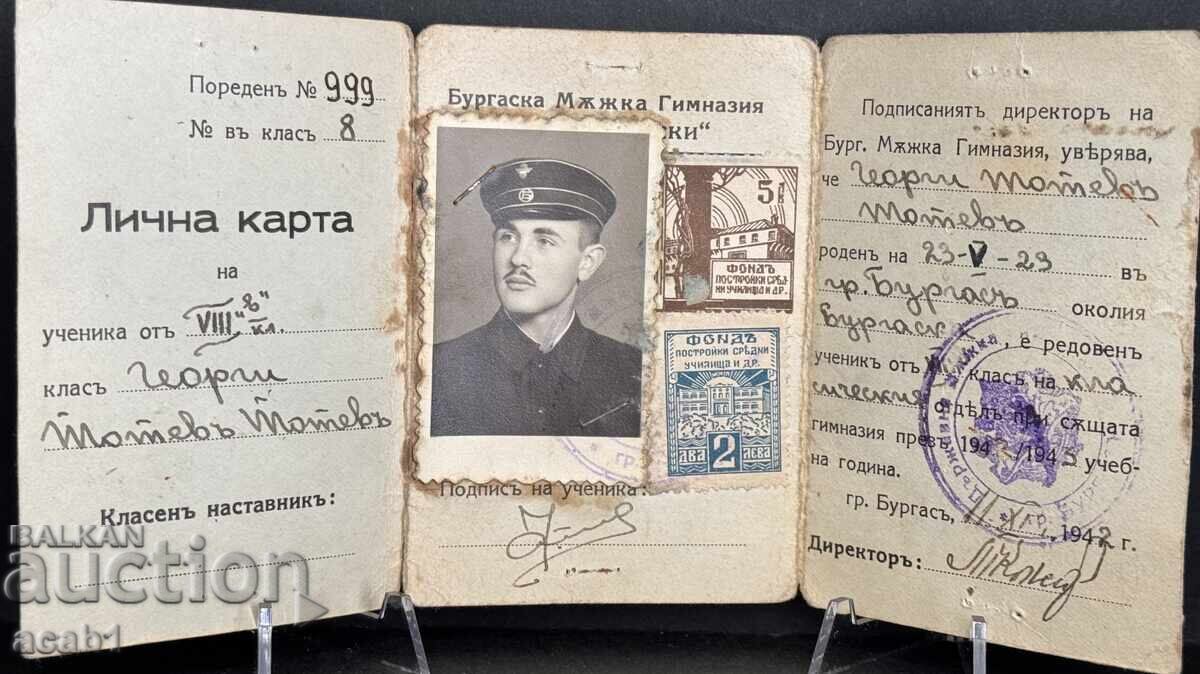 Пореденъ № 999
№ въ класъ 8
Лична карта
на
ученика отъ VIII "в" кл.
класъ Георги
Тотевъ Тотевъ
Класенъ наставникъ:
Бургаска Мѫжка Гимназия
ски“
5
ФОНДЪ
ПОСТРОЙКИ СРѢД-
НИ УЧИЛИЩА И ДР.
ФОНДЪ
ПОСТРОЙКИ СРѢДНИ
УЧИЛИЩА И ДР.
ДВА 2 ЛЕВА
ГР.
Подпис на ученика:
Подписаниятъ директоръ на
Бург. Мѫжка Гимназия, увѣрява,
че Георги Тотевъ
Тотевъ
роденъ на 23-V-23 въ
гр. Бургасъ околия
Бургаск, е редовенъ
ученикъ отъ класъ на кла
сическия отдѣлъ при сѫщата
гимназия презъ 194 /1943 учеб-
на година.
гр. Бургасъ, 11.XI. 1942 г.
Директоръ:
Държавна мѫжка
гр. Бургасъ
BALKAN
auction
acab1